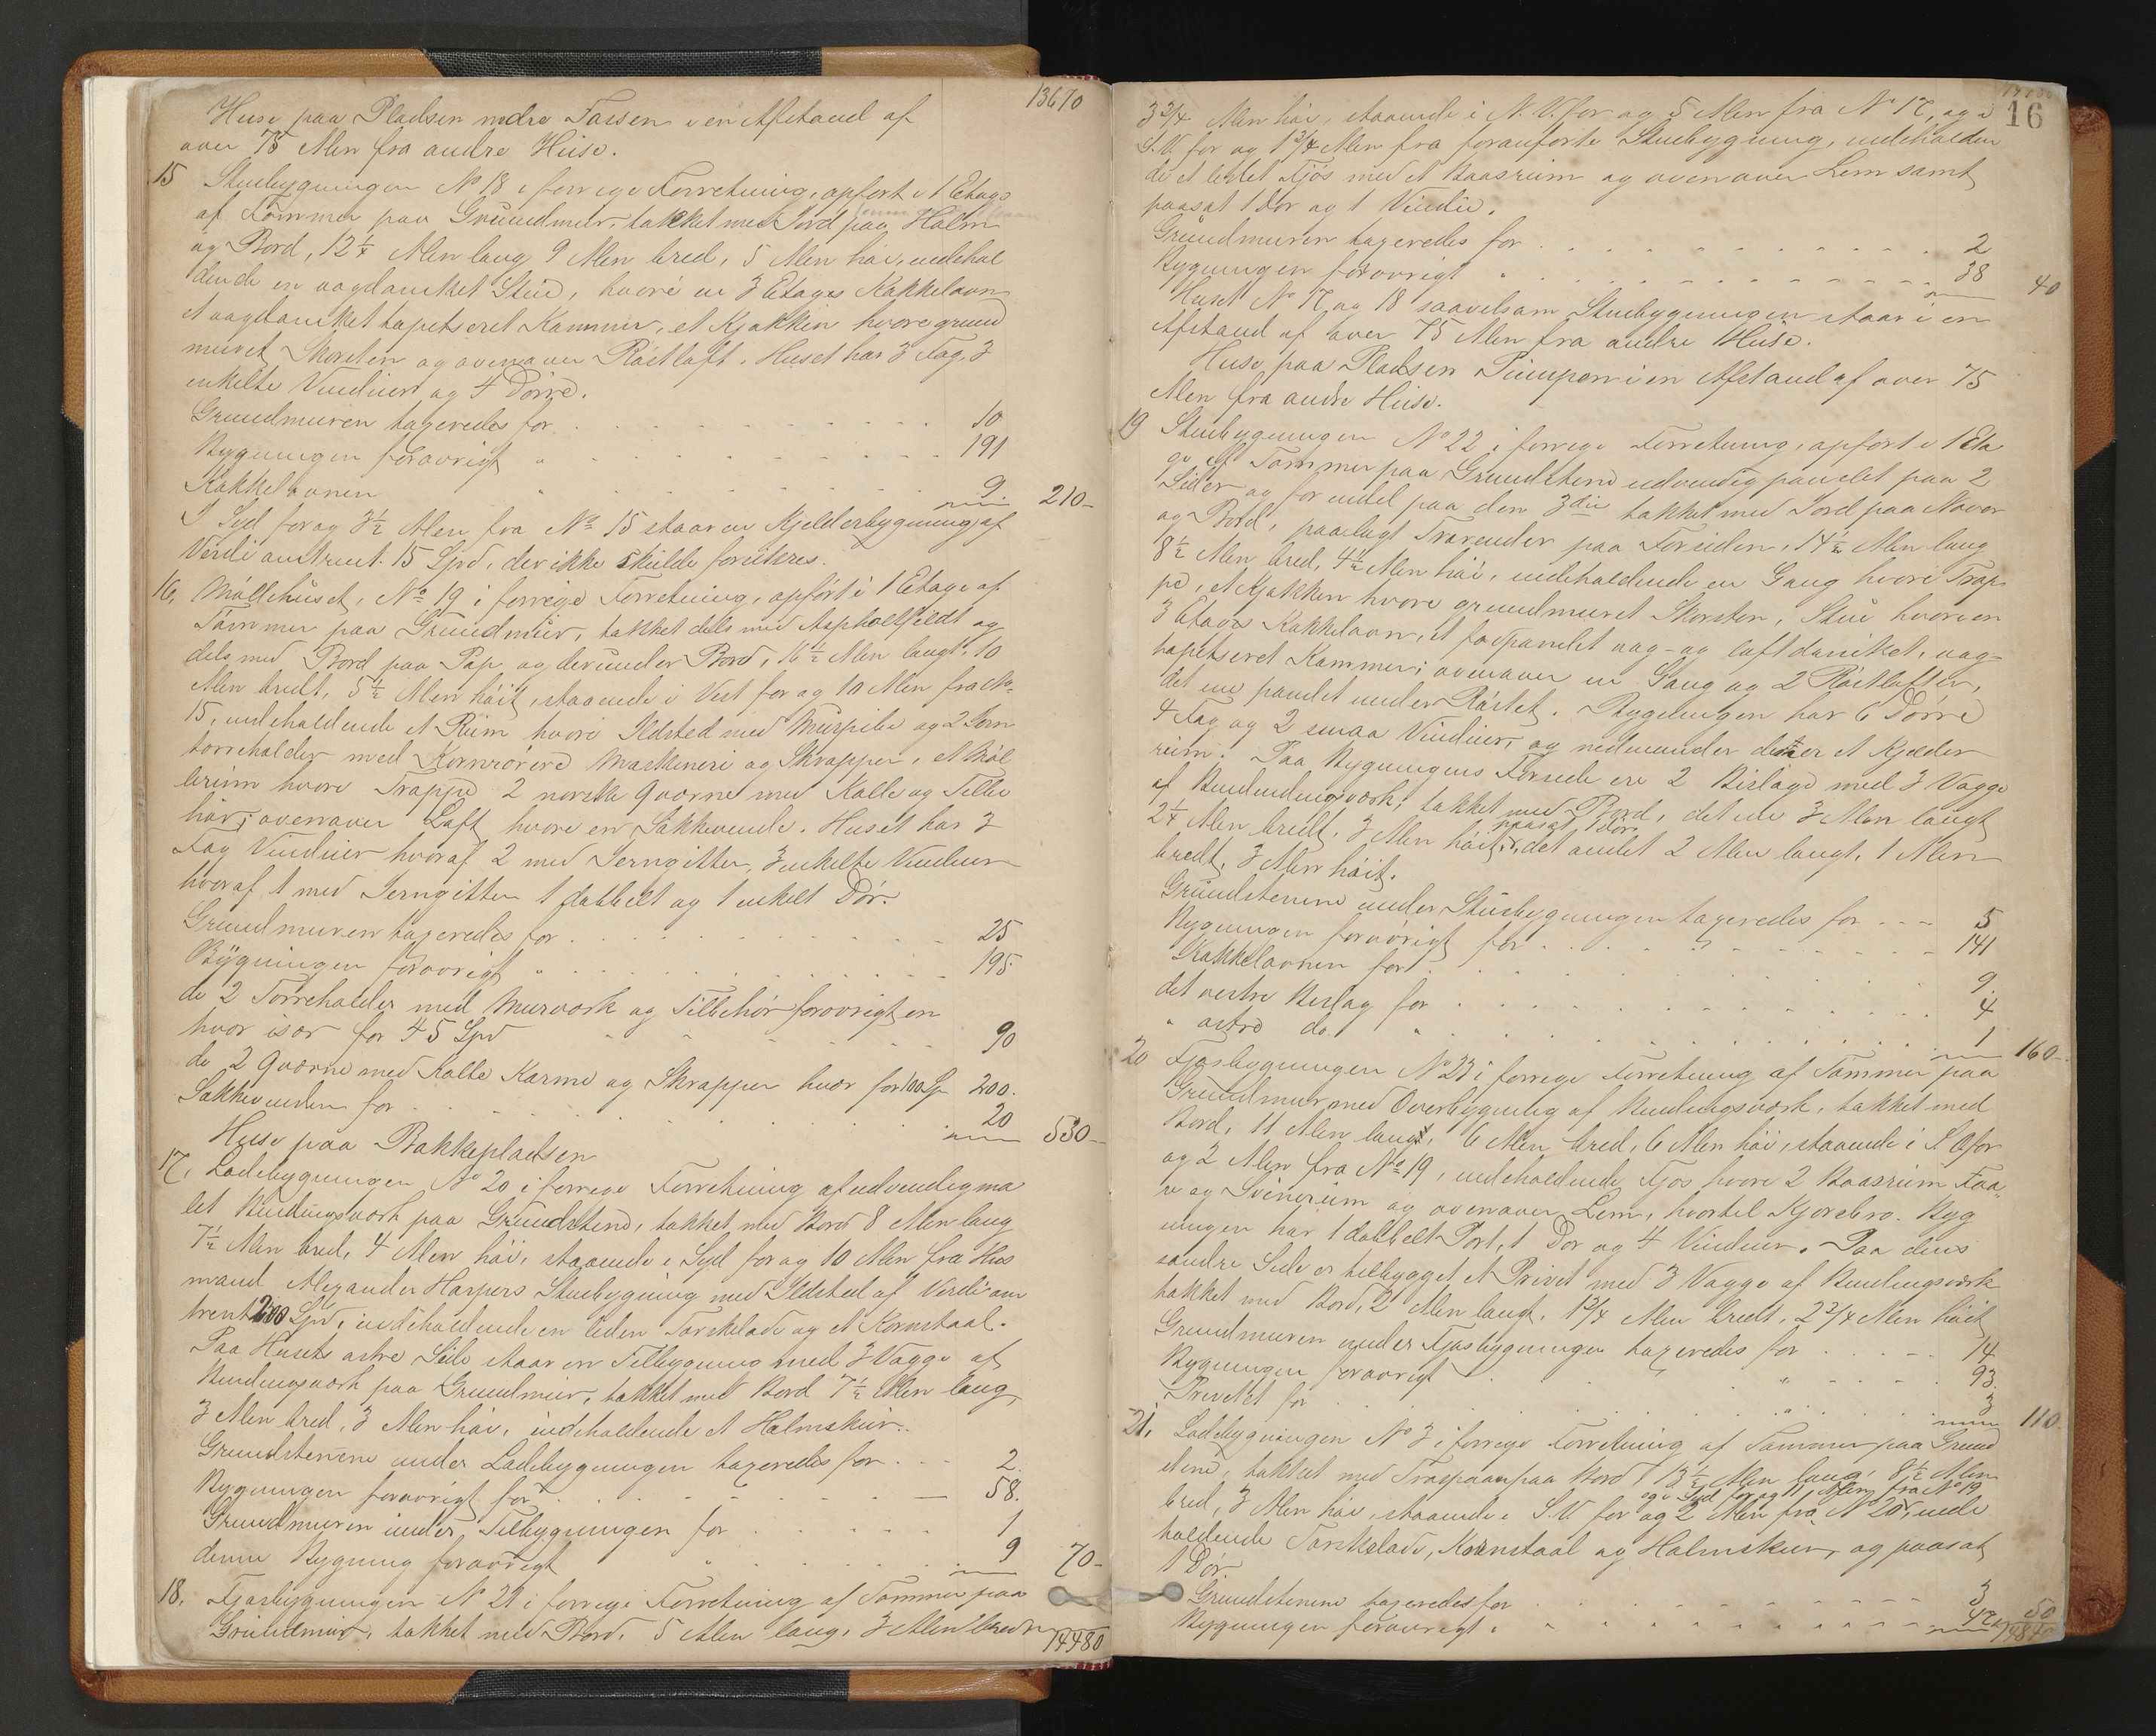 13670
Huse paa Pladsen nedre Fossen i en Afstand af
over 75 Alen fra andre Huse.
15 Stuebygningen No 18 i forrige Forretning, opført i 1 Etage
af Tømmer paa Grundmur, tækket med Jord paa Halm
og Bord, 12 1/4 Alen lang 9 Alen bred, 5 Alen høi, indehol
dende en vægdamket Stue, hvori en 3 Etages Kakkelovn
et vægdamket tapetseret Kammer, et Kjøkken hvori grund
muret Skorsten og ovenover Røstloft. Huset har 3 Fag, 3
enkelte Vinduer og 4 Dørre.
Grundmuren taxeredes for 10
Bygningen forøvrigt " 191
Kakkelovnen " 9 210-
I Syd for og 3 1/2 Alen fra No 15 staar en Kjelderbygning af
Værdi omtrent 15 Spd, der ikke skulde forsikres.
16, Møllehuset, No 19 i forrige Forretning, opført i 1 Etage af
Tømmer paa Grundmur, tækket dels med Asphaltfeldt og
dels med Bord paa Pap og derunder Bord, 16 1/2 Alen langt, 10
Alen bredt, 5 1/2 Alen høit, staaende i Vest for og 10 Alen fra No
15, indeholdende et Rum hvori Ildsted med Murpibe og 2 Korn
tørreholder med Kornrørere Maskineri og Skrapper, et Møl
lerum hvori Trappe 2 norske Qværne med Kalle og Tilbe
hør; ovenover Loft hvori en Sækkevinde. Huset har 3
Fag Vinduer hvoraf 2 med Jerngitter, 3 enkelte Vinduer
hvoraf 1 med Jerngitter 1 dobbelt og 1 enkelt Dør.
Grundmuren taxeredes for 25
Bygningen forøvrigt " 195
de 2 Tørreholder med Murværk og Tilbehør forøvrigt en
hver især for 45 Spd 90
de 2 Qværne med Kalle Karme og Skrapper hver for 100 Sp 200.
Sækkevinden for 20 530-
Huse paa Bakkepladsen
17, Ladebygningen No 20 i forrige Forretning af udvendig ma
let Bindingsværk paa Grundstene, tækket med Bord 8 Alen lang
7 1/2 Alen bred, 4 Alen høi, staaende i Syd for og 10 Alen fra Hus
mand Alexander Harpers Stuebygning med Ildsted af Værdi om
trent 200 Spd, indeholdende en liden Tærskelade og et Kornstaal.
Paa Husets østre Side staar en Tilbygning med 3 Vægge af
Bindingsværk paa Grundmur, tækket med Bord 7 1/2 Alen lang
3 Alen bred, 3 Alen høi, indeholdende et Halmskur.
Grundstenene under Ladebygningen taxeredes for 2.
Bygningen forøvrigt for 58.
Grundmuren under Tilbygningen for 1
denne Bygning forøvrigt " 9 70-
18. Fjøsbygningen No 21 i forrige Forretning af Tømmer paa
Grundmur, tækket med Bord, 5 Alen lang, 3 Alen bred
14480
16
3 3/4 Alen høi, staaende i N.V. for og 5 Alen fra No 17, og i
S.V. for og 1 3/4 Alen fra foranførte Stuebygning, indeholden
de et lidet Fjøs med et Baasrum og ovenover Lem samt
paasat 1 Dør og 1 Vindue.
Grundmuren taxeredes for 2
Bygningen forøvrigt " 38 40
Huset No 17 og 18 saavelsom Stuebygningen staar i en
Afstand af over 75 Alen fra andre Huse.
Huse paa Pladsen Pumpen i en Afstand af over 75
Alen fra andre Huse.
19 Stuebygningen No 22 i forrige Forretning, opført i 1 Eta
ge af Tømmer paa Grundstene udvendig panelet paa 2
Sider og for endel paa den 3die tækket med Jord paa Næver
og Bord, paalagt Tagrender paa Forsiden, 14 1/2 Alen lang
8 1/2 Alen bred, 4 1/2 Alen høi, indeholdende en Gang hvori Trap
pe, et Kjøkken hvori grundmuret Skorsten, Stue hvori en
3 Etages Kakkelovn, et fodpanelet væg- og loftdamket, væg-
tapetseret Kammer; ovenover en Gang og 2 Røstlofter,
det ene panelet under Røstet. Bygningen har 6 Dørre
4 Fag og 2 smaa Vinduer, og nedenunder den er et Kjelder
rum. Paa Bygningens Forside ere 2 Bislage med 3 Vægge
af Bindingsværk, tækket med Bord, det ene 3 Alen langt
2 1/4 Alen bredt, 3 Alen høit, paasat 1 Dør, det andet 2 Alen langt, 1 Alen
bredt, 3 Alen høit.
Grundstenene under Stuebygningen taxeredes for 5
Bygningen forøvrigt for 141
Kakkelovnen for 9
det vestre Bislag for 4
" østre do. " 1 160-
20 Fjøsbygningen No 23 i forrige Forretning af Tømmer paa
Grundmur med Overbygning af Bindingsværk, tækket med
Bord, 11 Alen lang, 6 Alen bred, 6 Alen høi, staaende i S.O for
og 2 Alen fra No 19, indeholdende Fjøs hvori 2 Baasrum Faa-
re og Svinerum og ovenover Lem, hvortil Kjørebro. Byg
ningen har 1 dobbelt Port, 1 Dør og 4 Vinduer. Paa dens
søndre Side er tilbygget et Privet med 3 Vægge af Bindingsværk
tækket med Bord, 2 Alen langt, 1 3/4 Alen bredt, 2 3/4 Alen høit
Grundmuren under Fjøsbygningen taxeredes for 14
Bygningen forøvrigt " 93
Privetet for " 3 110
21, Ladebygningen No 3 i forrige Forretning af Tømmer paa Grund
stene, tækket med Træspaan paa Bord 13 1/2 Alen lang, 8 1/2 Alen
bred, 3 Alen høi, staaende i S.V for og 2 Alen fra No 20, og i Syd for og 11 Alen fra No 19, inde
holdende Tærskelade, Kornstaal og Halmskur, og paasat
1 Dør.
Grundstenene taxeredes for 3
Bygningen forøvrigt " 47 50